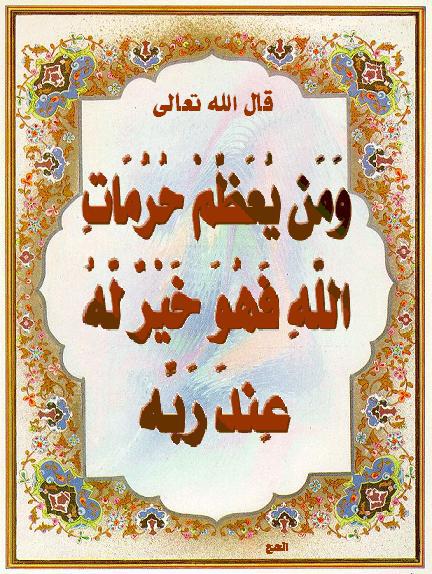 قال الله تعالى
وَمَن يُعَظِّمْ حُرُمَاتِ
اللَّهِ فَهُوَ خَيْرٌ لَّهُ
عِندَ رَبِّهِ
الحج